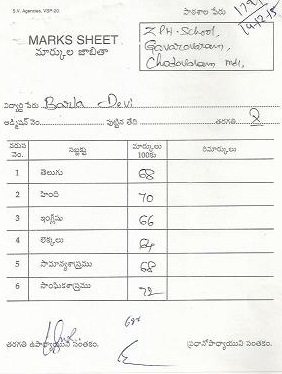 S.V. Agencies, VSP-20
పాఠశాల పేరు
MARKS SHEET
మార్కుల జాబితా
Z PH-School,
Gavaravaram,
Chodavaram Mdl,
విద్యార్థి పేరు Barla Devi
అడ్మిషన్ నెం. పుట్టిన తేది తరగతి 8
వరుస నెం. సబ్జక్టు మార్కులు 100కు రిమార్కులు
1 తెలుగు 68
2 హింది 70
3 ఇంగ్లీషు 66
4 లెక్కలు 64
5 సామాన్యశాస్త్రము 68
6 సాంఘికశాస్త్రము 72
తరగతి ఉపాధ్యాయుని సంతకం. ప్రధానోపాధ్యాయుని సంతకం.